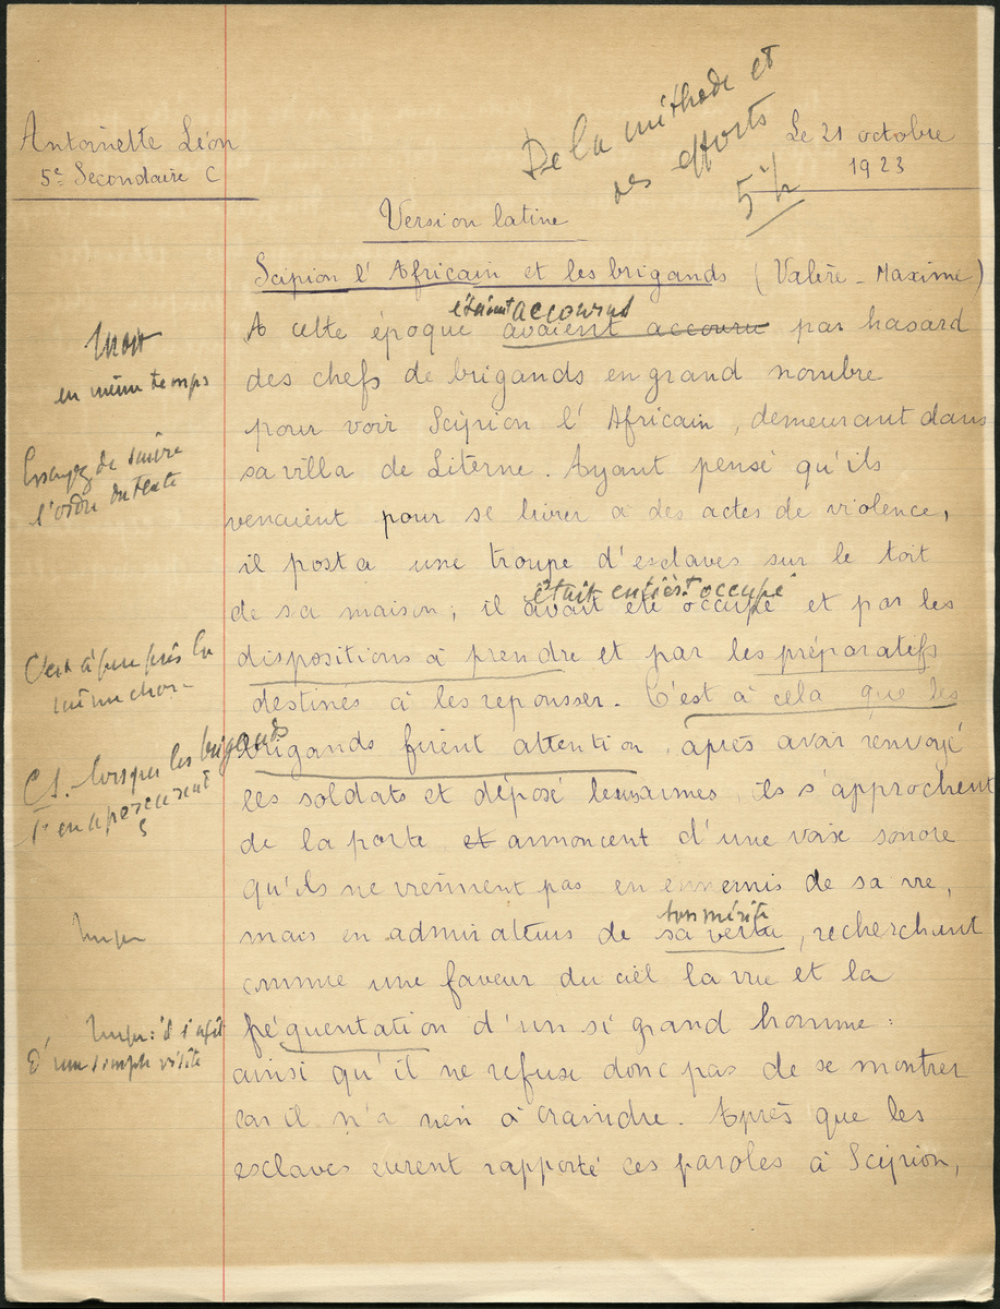 Antoinette Léon
5e Secondaire C
De la méthode et
des efforts
5 1/2
Le 21 octobre
1923
Version latine
Scipion l'Africain et les brigands (Valère-Maxime)
étaient accourus
A cette époque avaient accouru par hasard
Mon
en même temps
des chefs de brigands en grand nombre
pour voir Scipion l'Africain, demeurant dans
Essayez de suivre
l'ordre du texte
sa villa de Literne. Ayant pensé qu'ils
venaient pour se livrer à des actes de violence,
il posta une troupe d'esclaves sur le toit
était entièrt occupé
de sa maison; il avait été occupé et par les
C'est à peu près la
même chose
dispositions à prendre et par les préparatifs
destinés à les repousser. C'est à cela que les
lorsque les brigands
l'en aperçurent
brigands firent attention, après avoir renvoyé
les soldats et déposé leurs armes, ils s'approchent
de la porte et annoncent d'une voix sonore
qu'ils ne viennent pas en ennemis de sa vie,
son mérite
Impr
mais en admirateurs de sa vertu, recherchant
comme une faveur du ciel la vue et la
Impr: il s'agit
d'une simple visite
fréquentation d'un si grand homme:
ainsi qu'il ne refuse donc pas de se montrer
car il n'a rien à craindre. Après que les
esclaves eurent rapporté ces paroles à Scipion,